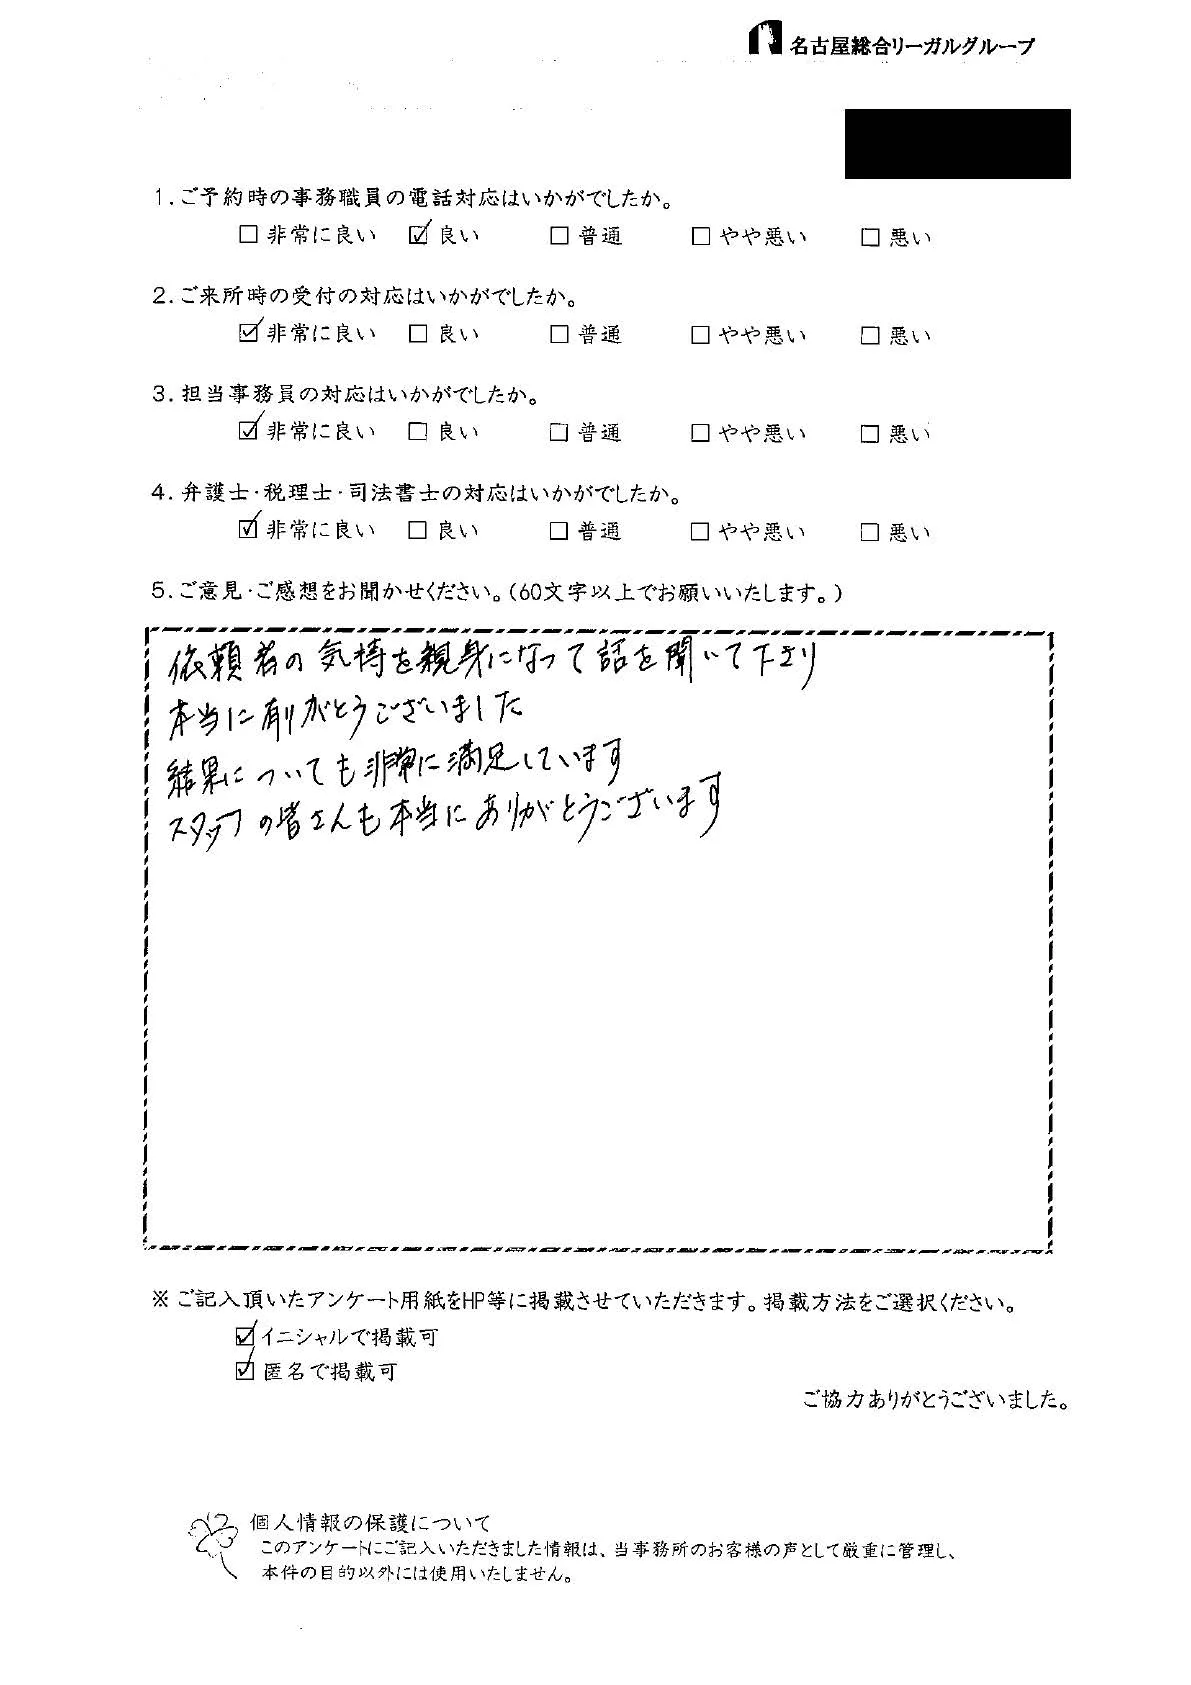 名古屋総合リーガルグループ
1.ご予約時の事務職員の電話対応はいかがでしたか。
□ 非常に良い ☑ 良い □ 普通 □ やや悪い □ 悪い
2.ご来所時の受付の対応はいかがでしたか。
☑ 非常に良い □ 良い □ 普通 □ やや悪い □ 悪い
3.担当事務員の対応はいかがでしたか。
☑ 非常に良い □ 良い □ 普通 □ やや悪い □ 悪い
4.弁護士・税理士・司法書士の対応はいかがでしたか。
☑ 非常に良い □ 良い □ 普通 □ やや悪い □ 悪い
5.ご意見・ご感想をお聞かせください。(60文字以上でお願いいたします。)
依頼者の気持を親身になって話を聞いて下さり
本当に有りがとうございました
結果についても非常に満足しています
スタッフの皆さんも本当にありがとうございます
※ ご記入頂いたアンケート用紙をHP等に掲載させていただきます。掲載方法をご選択ください。
☑ イニシャルで掲載可
☑ 匿名で掲載可
ご協力ありがとうございました。
個人情報の保護について
このアンケートにご記入いただきました情報は、当事務所のお客様の声として厳重に管理し、
本件の目的以外には使用いたしません。